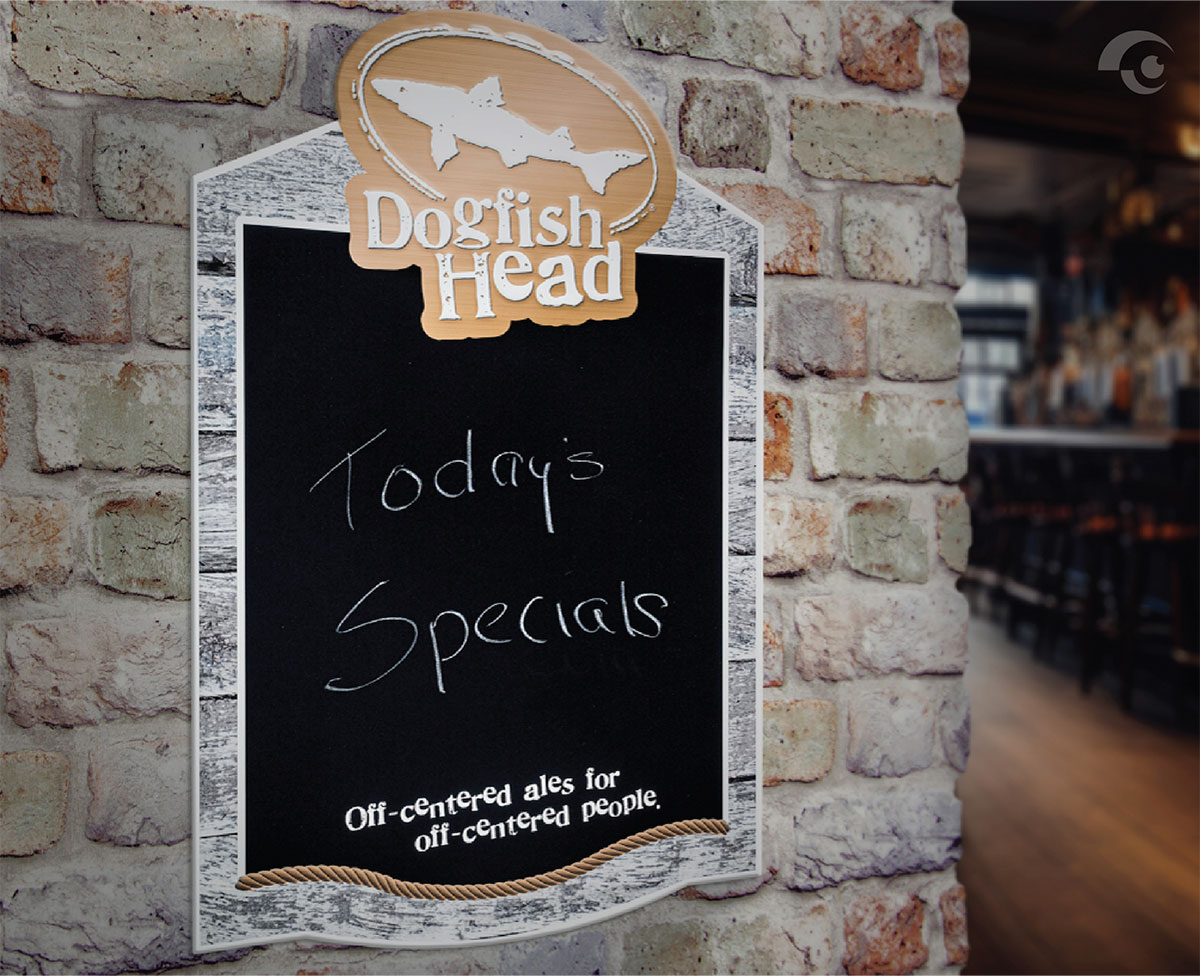 Dogfish
Head
Today's
Specials
Off-centered ales for
off-centered people.